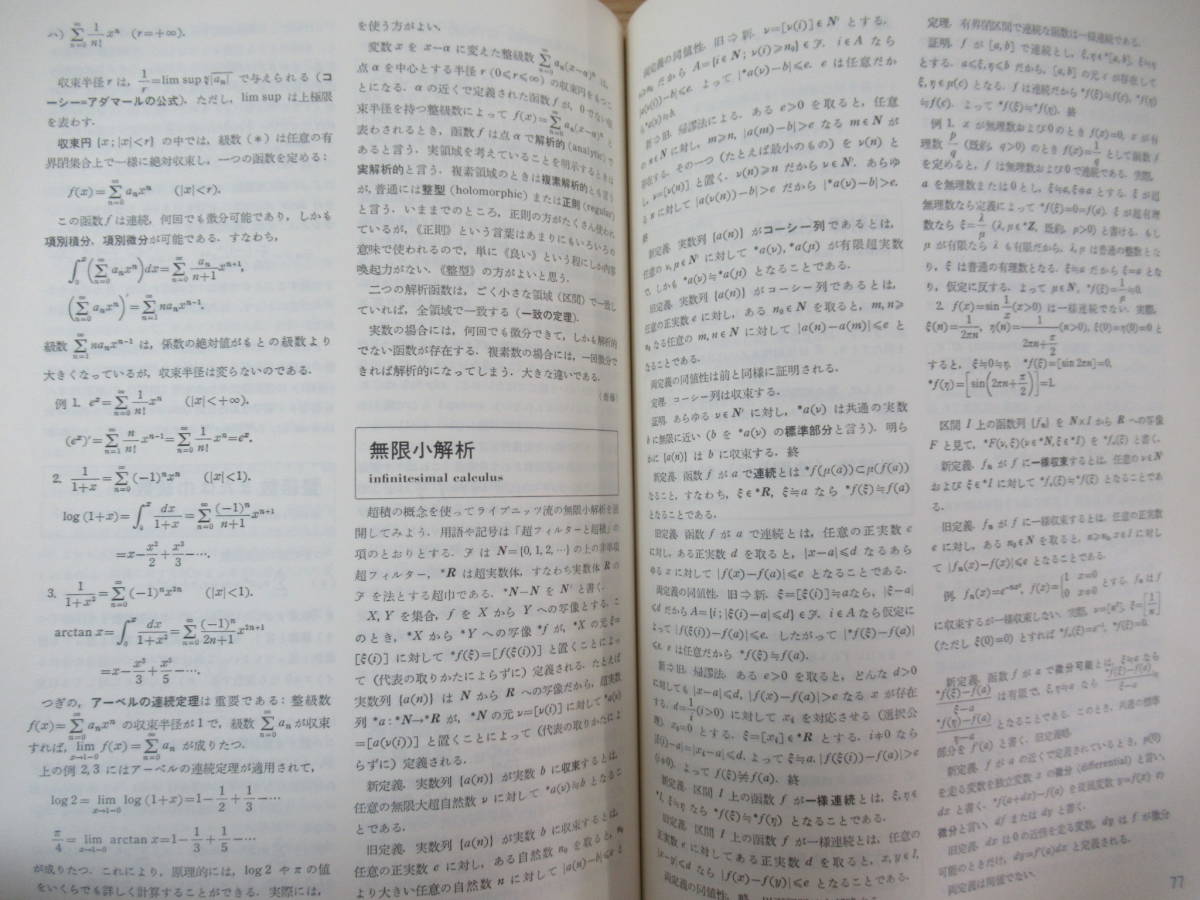 ハ) ∑_{n=0}^{∞} 1/n! x^n (r=+∞).
収束半径 r は, 1/r=lim sup ⁿ√|a_n| で与えられる (コ
ーシー=アダマールの公式). ただし, lim sup は上極限
を表わす.
収束円 {x; |x|<r} の中では, 級数 (*) は任意の有
界閉集合上で一様に絶対収束し, 一つの函数を定める:
f(x)=∑_{n=0}^{∞} a_n x^n (|x|<r).
この函数 f は連続, 何回でも微分可能であり, しかも
項別積分, 項別微分が可能である. すなわち,
∫_0^x (∑_{n=0}^{∞} a_n x^n) dx=∑_{n=0}^{∞} a_n/(n+1) x^{n+1},
(∑_{n=0}^{∞} a_n x^n)′=∑_{n=1}^{∞} n a_n x^{n-1}.
級数 ∑_{n=1}^{∞} n a_n x^{n-1} は, 係数の絶対値がもとの級数より
大きくなっているが, 収束半径は変らないのである.
例 1. e^x=∑_{n=0}^{∞} 1/n! x^n (|x|<+∞).
(e^x)′=∑_{n=1}^{∞} n/n! x^{n-1}=∑_{n=0}^{∞} 1/n! x^n=e^x.
2. 1/(1+x)=∑_{n=0}^{∞} (-1)^n x^n (|x|<1).
log (1+x)=∫_0^x dx/(1+x)=∑_{n=0}^{∞} (-1)^n/(n+1) x^{n+1}
=x-x^2/2+x^3/3-⋯.
3. 1/(1+x^2)=∑_{n=0}^{∞} (-1)^n x^{2n} (|x|<1).
arctan x=∫_0^x dx/(1+x^2)=∑_{n=0}^{∞} (-1)^n/(2n+1) x^{2n+1}
=x-x^3/3+x^5/5-⋯.
つぎの, アーベルの連続定理は重要である: 整級数
f(x)=∑_{n=0}^{∞} a_n x^n の収束半径が 1 で, 級数 ∑_{n=0}^{∞} a_n が収束
すれば, lim_{x→1-0} f(x)=∑_{n=0}^{∞} a_n が成りたつ.
上の例 2, 3 にはアーベルの連続定理が適用されて,
log 2= lim_{x→1-0} log (1+x)=1-1/2+1/3-⋯
π/4= lim_{x→1-0} arctan x=1-1/3+1/5-⋯
が成りたつ. これにより, 原理的には, log 2 や π の値
をいくらでも詳しく計算することができる. 実際には,
を使う方がよい.
変数 x を x-α に変えた整級数 ∑_{n=0}^{∞} a_n(x-α)^n は,
点 α を中心とする半径 r (0≤r≤∞) の収束円をもつこ
とになる. α の近くで定義された函数が, 0 でない収
束半径を持つ整級数によって f(x)=∑_{n=0}^{∞} a_n(x-α)^n と
表わされるとき, 函数 f は点 α で解析的 (analytic) で
あると言う. 実領域を考えていることを明示するときは
実解析的と言う. 複素領域のときは複素解析的とも言う
が, 普通には整型 (holomorphic) または正則 (regular)
と言う. いままでのところ, 正則の方がたくさん使われ
ているが,《正則》という言葉はあまりにもいろいろの
意味で使われるので, 単に《良い》という程にしか内容
喚起力がない.《整型》の方がよいと思う.
二つの解析函数は, ごく小さな領域 (区間) で一致し
ていれば, 全領域で一致する (一致の定理).
実数の場合には, 何回でも微分できて, しかも解析的
でない函数が存在する. 複素数の場合には, 一回微分で
きれば解析的になってしまう. 大きな違いである.
無限小解析
infinitesimal calculus
超積の概念を使ってライプニッツ流の無限小解析を展
開してみよう. 用語や記号は「超フィルターと超積」の
項のとおりとする. ℱ は N={0,1,2,⋯} の上の非単項
超フィルター, *R は超実数体, すなわち実数体 R の
ℱ を法とする超巾である. *N-N を N^∞ と書く.
X, Y を集合, f を X から Y への写像とする. こ
のとき, *X から *Y への写像 *f が, *X の元 ξ=
[ξ(i)] に対して *f(ξ)=[f(ξ(i))] と置くことによっ
て (代表の取りかたによらずに) 定義される. たとえば
実数列 {a(n)} は N から R への写像だから, 超実数
列 *a: *N→*R が, *N の元 ν=[ν(i)] に対して *a(ν)
=[a(ν(i))] と置くことによって (代表の取りかたによ
らずに) 定義される.
新定義. 実数列 {a(n)} が実数 b に収束するとは,
任意の無限大超自然数 ν に対して *a(ν)≒b となるこ
とである.
旧定義. 実数列 {a(n)} が実数 b に収束するとは,
任意の正実数 e に対し, ある自然数 n₀ を取ると, n₀
より大きい任意の自然数 n に対して |a(n)-b|≤e と
両定義の同値性. 旧⇒新. ν=[ν(i)]∈N^∞ とする.
だから A={i∈N; ν(i)≥n₀}∈ℱ. i∈A なら
|a(ν(i))-b|≤e. よって |*a(ν)-b|≤e. e は任意だか
ら *a(ν)≒b.
新⇒旧. 帰謬法による. ある e>0 を取ると, 任意
の n∈N に対し, m≥n, |a(m)-b|>e なる m∈N が
存在する. その一つ (たとえば最小のもの) を ν(n) と
し, ν=[ν(n)] と置く. ν(n)≥n だから ν∈N^∞. あらゆ
る n に対して |a(ν(n))-b|>e だから |*a(ν)-b|>e.
終
新定義. 実数列 {a(n)} がコーシー列であるとは,
任意の ν, μ∈N^∞ に対して *a(ν), *a(μ) が有限超実数
で, しかも *a(ν)≒*a(μ) となることである.
旧定義. 実数列 {a(n)} がコーシー列であるとは,
任意の正実数 e に対し, ある n₀∈N を取ると, m, n≥
n₀ なる任意の m, n∈N に対して |a(n)-a(m)|≤e と
なることである.
両定義の同値性は前と同様に証明される.
定理. コーシー列は収束する.
証明. あらゆる ν∈N^∞ に対し, *a(ν) は共通の実数
b に無限に近い (b を *a(ν) の標準部分と言う). 明ら
かに {a(n)} は b に収束する. 終
新定義. 函数 f が a で連続とは *f(μ(a))⊂μ(f(a))
なること, すなわち, ξ∈*R, ξ≒a なら *f(ξ)≒f(a)
となることである.
旧定義. 函数 f が a で連続とは, 任意の正実数 e
に対し, ある正実数 d を取ると, |x-a|≤d なるあら
ゆる x に対して |f(x)-f(a)|≤e となることである.
両定義の同値性. 旧⇒新. ξ=[ξ(i)]≒a なら, |ξ-a|
≤d だから A={i; |ξ(i)-a|≤d}∈ℱ. i∈A なら仮定に
よって |f(ξ(i))-f(a)|≤e. したがって |*f(ξ)-f(a)|
≤e. e は任意だから *f(ξ)≒f(a).
新⇒旧. 帰謬法. ある e>0 を取ると, どんな d>0
に対しても |x-a|≤d, |f(x)-f(a)|>e なる x が存在
する. d=1/i (i>0) に対して x_i を対応させる (選択公
理). x₀=0 とする. ξ=[x_i]∈*R とする. i≠0 なら
|ξ(i)-a|=|x_i-a|≤d. よって ξ≒a. |f(ξ(i))-f(a)|>e
(i≠0). よって f(ξ)≒̸f(a). 終
新定義. 区間 I 上の函数 f が一様連続とは, ξ, η∈
*I, ξ≒η なら *f(ξ)≒*f(η) となることである.
旧定義. 区間 I 上の函数 f が一様連続とは, 任意の
正実数 e に対してある正実数 d を取ると, x, y∈I,
|x-y|≤d なら |f(x)-f(y)|≤e となることである.
定理. 有界閉区間で連続な函数は一様連続である.
証明. f が [a, b] で連続とし, ξ, η∈*[a, b], ξ≒η
とする. a≤ξ, η≤b だから, [a, b] の元 c が存在して
ξ, η∈μ(c) となる. f は連続だから *f(ξ)≒f(c), *f(η)
≒f(c). よって *f(ξ)≒*f(η). 終
例 1. x が無理数および 0 のとき f(x)=0, x が有
理数 p/q (既約, q>0) のとき f(x)=1/q として函数 f
を定めると, f は無理数および 0 で連続である. 実際,
a を無理数または 0 とし, ξ≒a, ξ≠a とする. ξ が超
無理数なら定義によって *f(ξ)=0=f(a). ξ が超有理
数なら ξ=λ/μ (λ, μ∈*Z, 既約, μ>0) と書ける. もし
μ が有限なら λ も有限だから, λ, μ は普通の整数とな
り, ξ は普通の有理数となる. ξ≒a だから ξ=a とな
り, 仮定に反する. よって μ∈N^∞, *f(ξ)=1/μ≒0.
2. f(x)=sin 1/x (x>0) は一様連続でない. 実際,
ξ(n)=1/(2πn), η(n)=1/(2πn+π/2) (n>0), ξ(0)=η(0)=0 と
すると, ξ≒0≒η, *f(ξ)=[sin 2πn]=0,
*f(η)=[sin(2πn+π/2)]=1.
区間 I 上の函数列 {f_n} を N×I から R への写像
F と見て, *F(ν, ξ) (ν∈*N, ξ∈*I) を *f_ν(ξ) と書く.
新定義. f_n が f に一様収束するとは, 任意の ν∈N^∞
および ξ∈*I に対して *f_ν(ξ)≒*f(ξ) となることであ
る.
旧定義. f_n が f に一様収束するとは, 任意の正実数
e に対し, ある n₀∈N を取ると, n≥n₀, x∈I に対し
て |f_n(x)-f(x)|≤e となることである.
に収束するが一様収束しない.
(ただし ξ(0)=0) とすれば
新定義. 函数 f が a で微分可能とは,
部分を f′(a) と書く. 旧定義略.
新定義. f が a の近くで定義されているとき, μ(0)
を走る変数を独立変数 x の微分 (differential) と言い,
dx と書く. *f(a+dx)-f(a) を従属変数 y=f(x) の
微分と言い, df または dy と書く.
旧定義. dx は 0 の近傍を走る変数, dy は f が微分
可能のときだけ, dy=f′(a)dx と定義される.
両定義は同値でない.
77